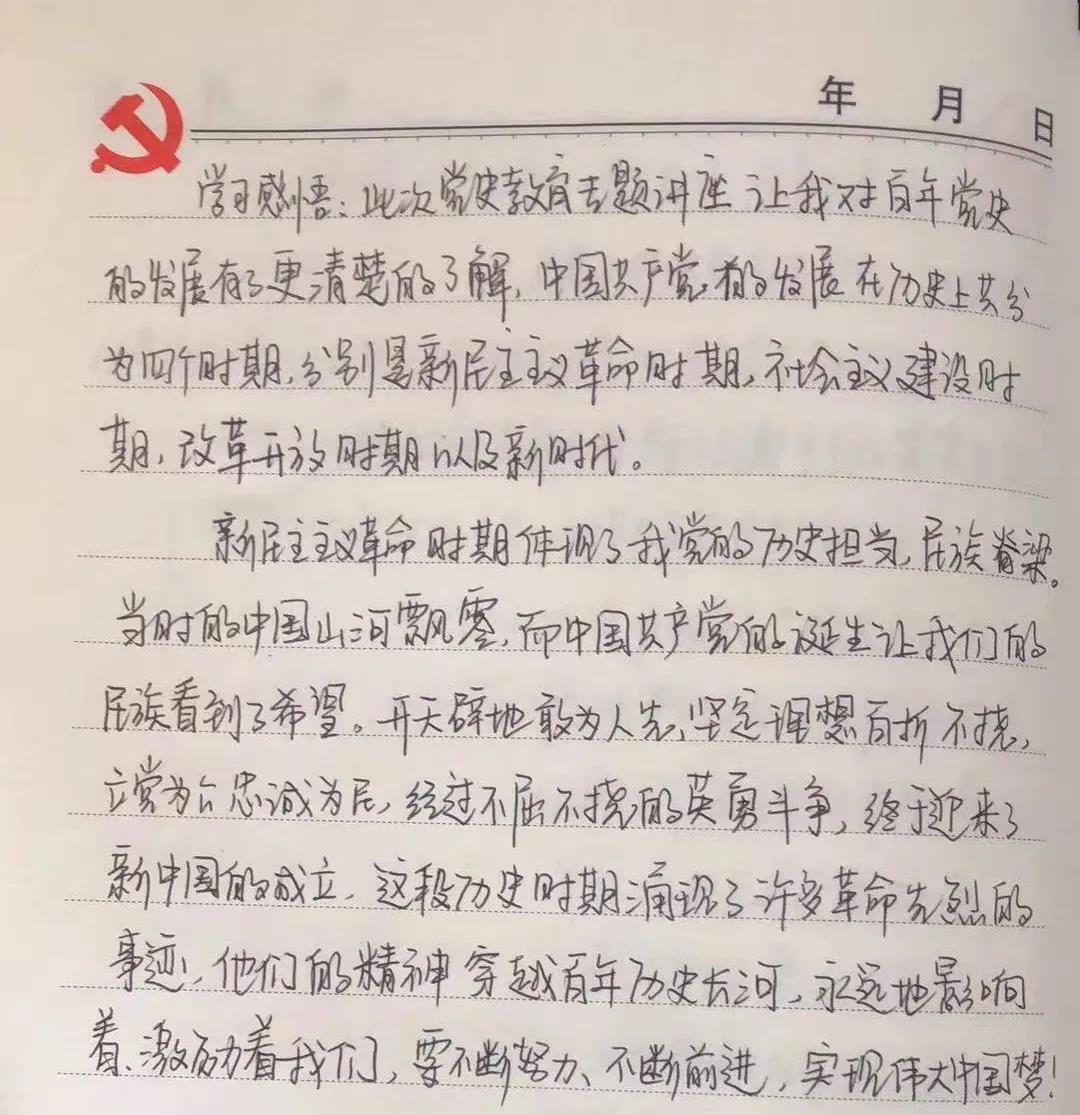 年 月 日
学习感悟：此次党史教育专题讲座让我对百年党史
的发展有了更清楚的了解，中国共产党的发展在历史上共分
为四个时期，分别是新民主主义革命时期，社会主义建设时
期，改革开放时期以及新时代。
新民主主义革命时期体现了我党的历史担当，民族脊梁。
当时的中国山河飘零，而中国共产党的诞生让我们的
民族看到了希望。开天辟地敢为人先，坚定理想百折不挠，
立党为公忠诚为民，经过不屈不挠的英勇斗争，终于迎来了
新中国的成立，这段历史时期涌现了许多革命先烈的
事迹，他们的精神穿越百年历史长河，永远地影响
着、激励着我们，要不断努力、不断前进，实现伟大中国梦！